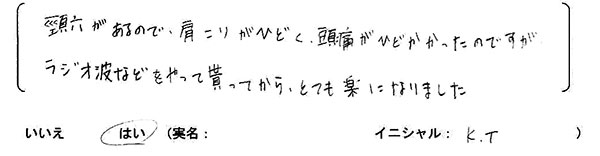 頸穴があるので、肩こりがひどく、頭痛がひどかかったのですが
ラジオ波などをやって貰ってから、とても楽になりました
いいえ はい (実名: イニシャル: K.T )